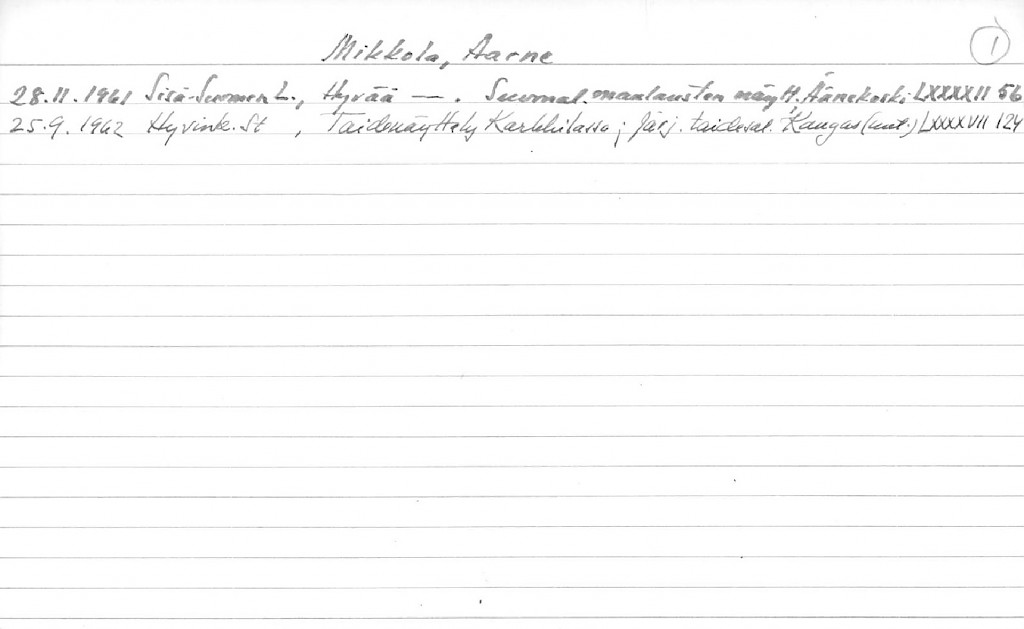 Mikkola, Aarne
1
28.11.1961 Sisä-Suomen L., Hyvää —. Suomal. maalausten näytt. Äänekoski LXXXXII 56
25.9.1962 Hyvink. St , Taidenäyttely Karkkilassa; Järj. taidesal. Kangas (mut.) LXXXXVII 124